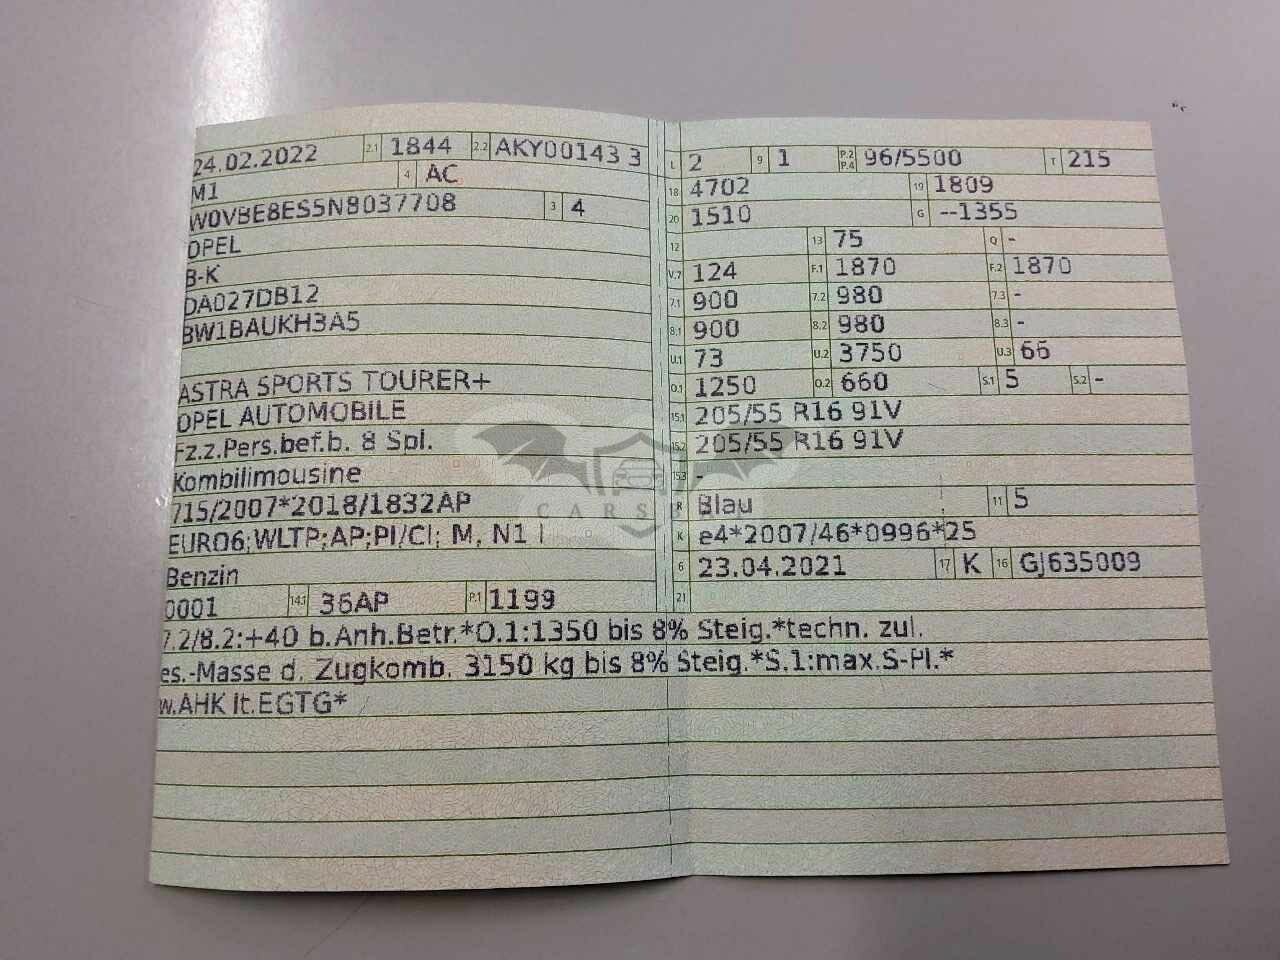 24.02.2022 2.1 1844 2.2 AKY00143 3
M1 4 AC
W0VBE8ES5N8037708 3 4
OPEL
B-K
DA027DB12
BW1BAUKH3A5
ASTRA SPORTS TOURER+
OPEL AUTOMOBILE
Fz.z.Pers.bef.b. 8 Spl.
Kombilimousine
715/2007*2018/1832AP
EURO6;WLTP;AP;PI/CI; M, N1 I
Benzin
0001 14.1 36AP P.1 1199
L 2 9 1 P.2 P.4 96/5500 T 215
18 4702 19 1809
20 1510 G --1355
12 13 75 Q -
V.7 124 F.1 1870 F.2 1870
7.1 900 7.2 980 7.3 -
8.1 900 8.2 980 8.3 -
U.1 73 U.2 3750 U.3 66
O.1 1250 O.2 660 S.1 5 S.2 -
15.1 205/55 R16 91V
15.2 205/55 R16 91V
15.3 -
R Blau 11 5
K e4*2007/46*0996*25
6 23.04.2021 17 K 16 GJ635009
21
7.2/8.2:+40 b.Anh.Betr.*O.1:1350 bis 8% Steig.*techn. zul.
es.-Masse d. Zugkomb. 3150 kg bis 8% Steig.*S.1:max.S-Pl.*
w.AHK lt.EGTG*